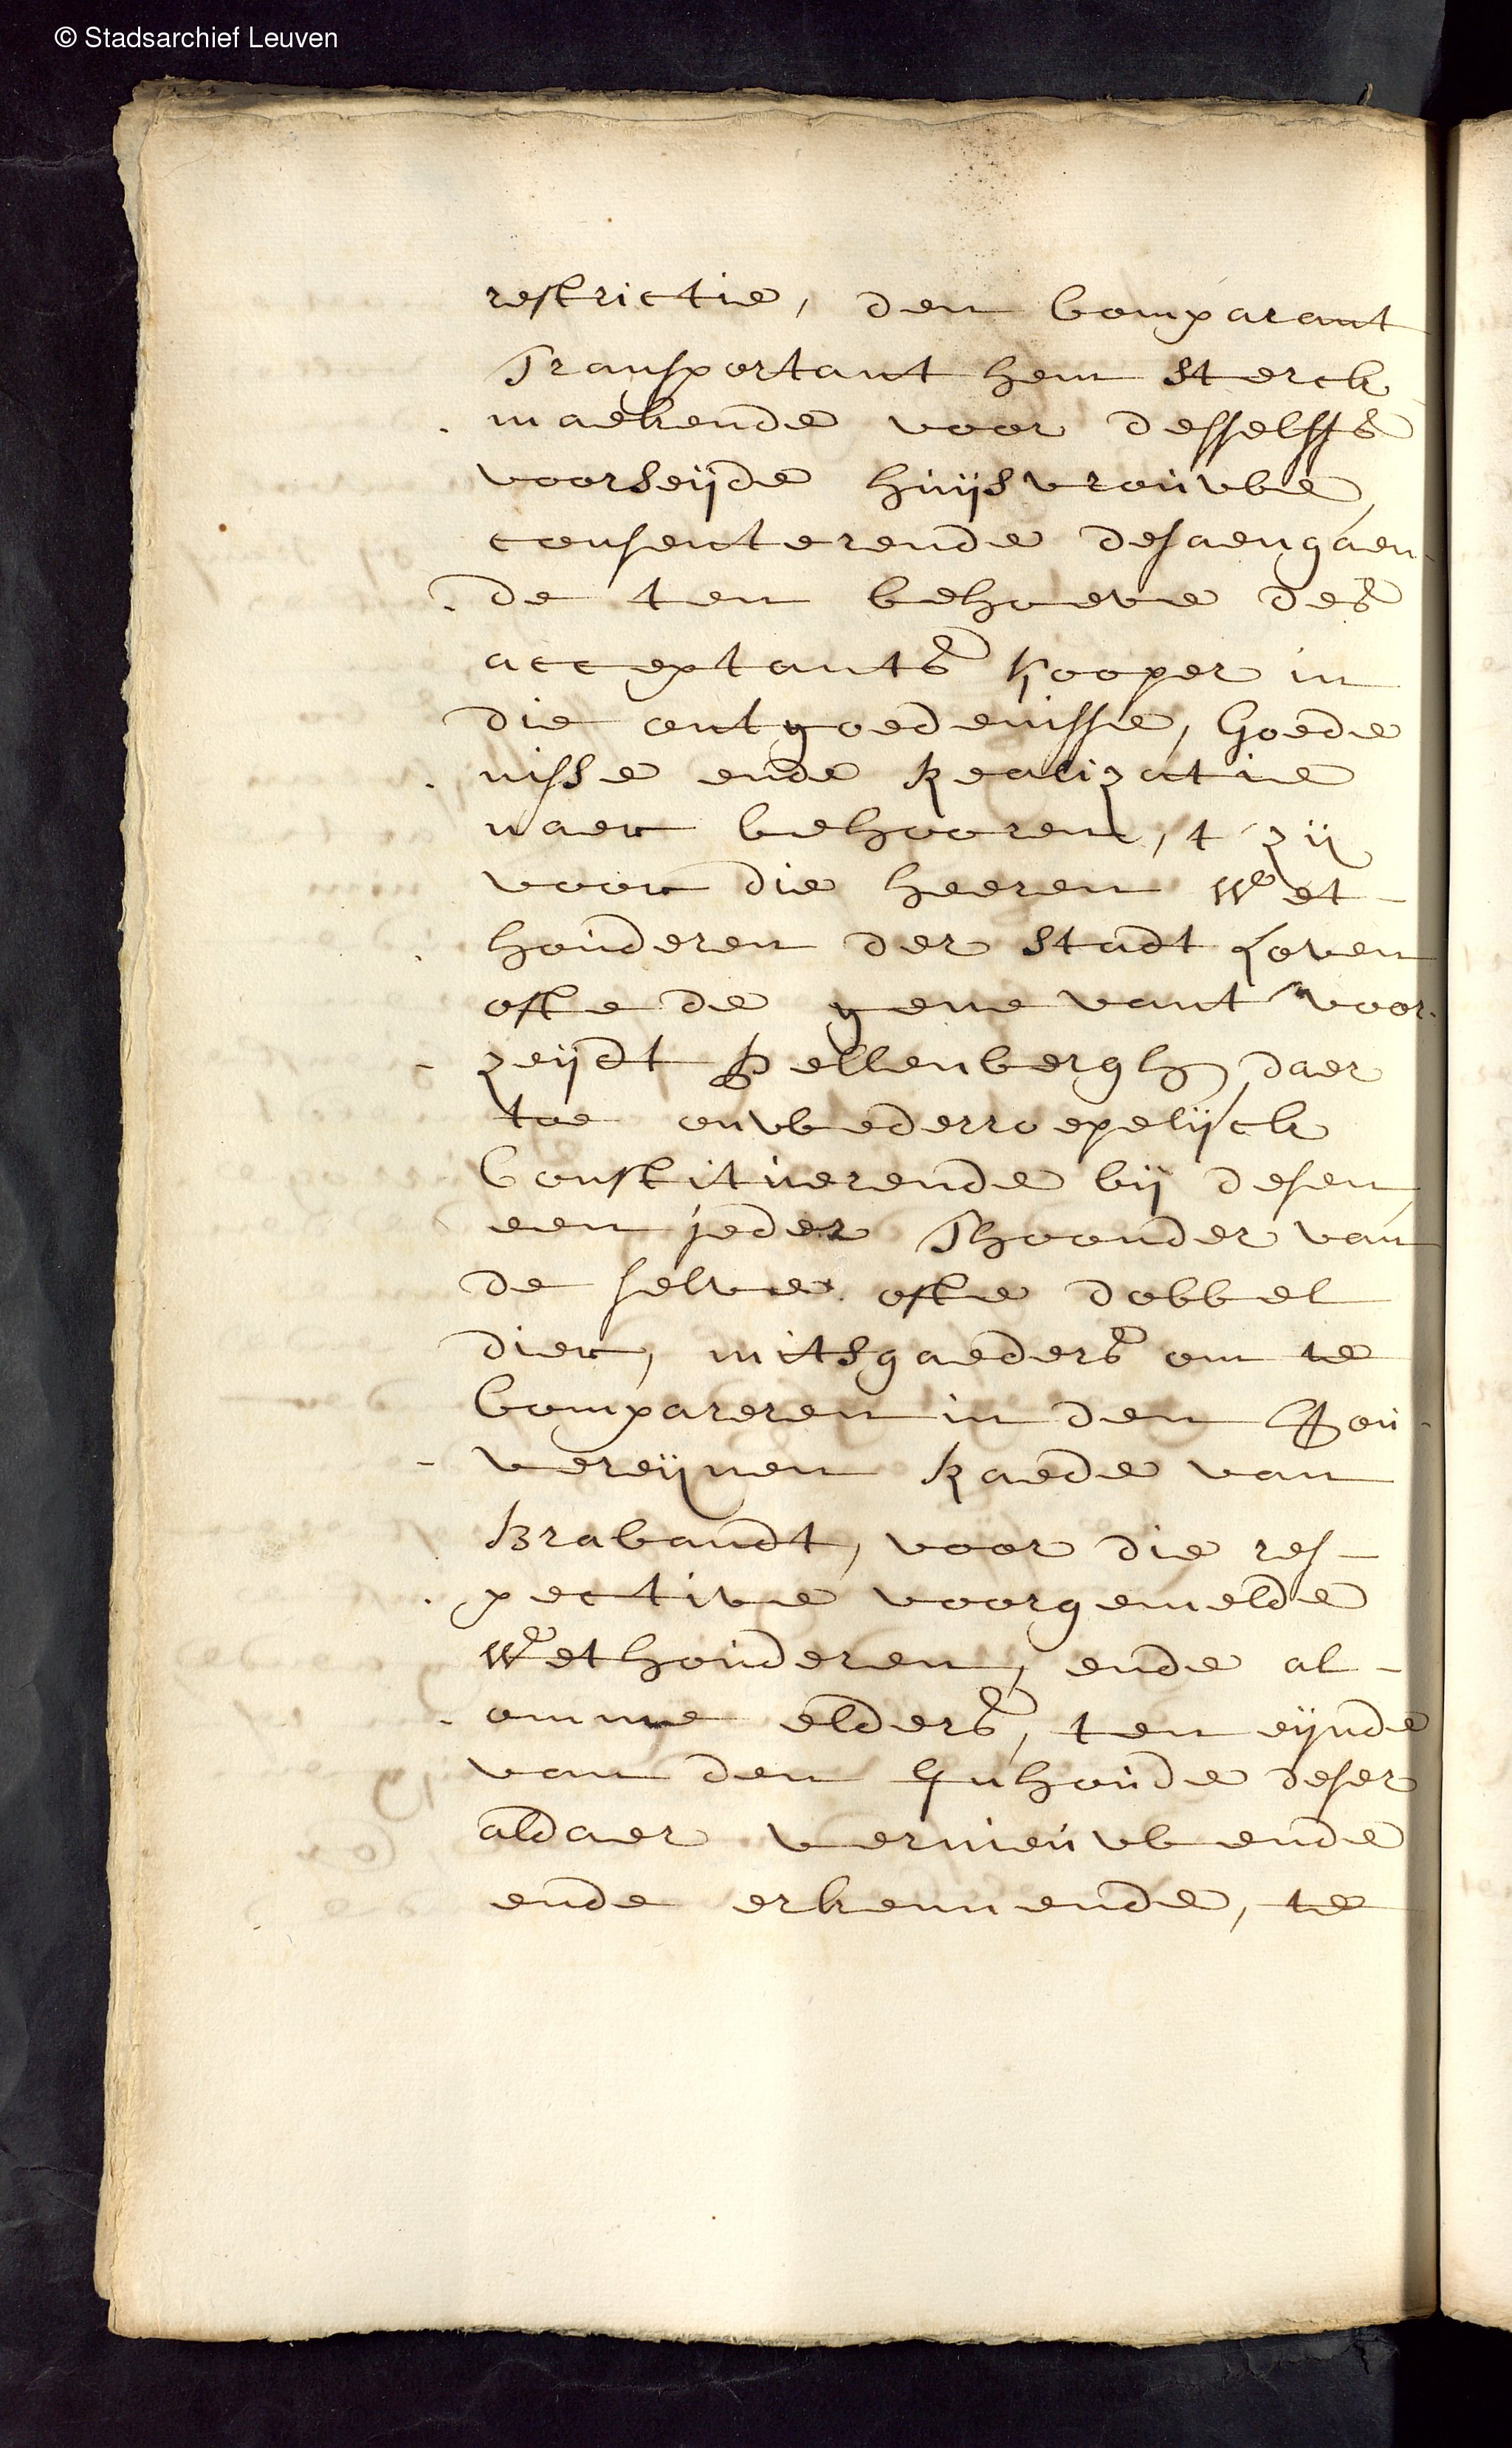 © Stadsarchief Leuven
restrictie, den Comparant
Transportant hem sterck
maekende voor desselffs
voorseijde huijsvrouwe,
consenterende desaengaen-
de ten behoeve des
acceptants kooper in
die ontgoedenisse, Goede
nisse ende Realizatie
naer behooren, t zij
voor die heeren Wet-
houderen der stadt Loven
ofte de gene vant voor-
zeijdt Pellenbergh, daer
toe onwederroepelijck
Constituerende bij desen
een jeder Thoonder van
de selve ofte dobbel
dier, mitsgaeders om te
Compareren in den Sou-
vereijnen Raede van
Brabandt, voor die res-
pective voorgemelde
Wethouderen, ende al-
omme elders, ten eijnde
van den Inhoude deser
aldaer vernieuwende
ende erkennende, te